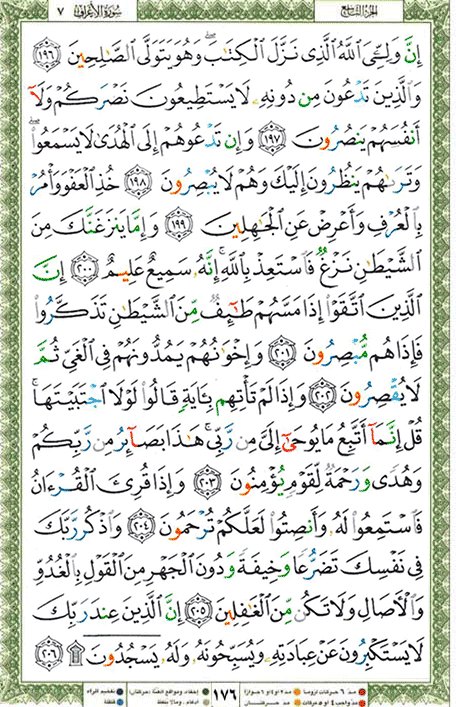 الجزء التاسع سورة الأعراف ٧
إِنَّ وَلِـِّۧىَ ٱللَّهُ ٱلَّذِى نَزَّلَ ٱلْكِتَٰبَ ۖ وَهُوَ يَتَوَلَّى ٱلصَّٰلِحِينَ ١٩٦
وَٱلَّذِينَ تَدْعُونَ مِن دُونِهِۦ لَا يَسْتَطِيعُونَ نَصْرَكُمْ وَلَآ
أَنفُسَهُمْ يَنصُرُونَ ١٩٧ وَإِن تَدْعُوهُمْ إِلَى ٱلْهُدَىٰ لَا يَسْمَعُوا۟ ۖ
وَتَرَىٰهُمْ يَنظُرُونَ إِلَيْكَ وَهُمْ لَا يُبْصِرُونَ ١٩٨ خُذِ ٱلْعَفْوَ وَأْمُرْ
بِٱلْعُرْفِ وَأَعْرِضْ عَنِ ٱلْجَٰهِلِينَ ١٩٩ وَإِمَّا يَنزَغَنَّكَ مِنَ
ٱلشَّيْطَٰنِ نَزْغٌ فَٱسْتَعِذْ بِٱللَّهِ ۚ إِنَّهُۥ سَمِيعٌ عَلِيمٌ ٢٠٠ إِنَّ
ٱلَّذِينَ ٱتَّقَوْا۟ إِذَا مَسَّهُمْ طَٰٓئِفٌ مِّنَ ٱلشَّيْطَٰنِ تَذَكَّرُوا۟
فَإِذَا هُم مُّبْصِرُونَ ٢٠١ وَإِخْوَٰنُهُمْ يَمُدُّونَهُمْ فِى ٱلْغَىِّ ثُمَّ
لَا يُقْصِرُونَ ٢٠٢ وَإِذَا لَمْ تَأْتِهِم بِـَٔايَةٍ قَالُوا۟ لَوْلَا ٱجْتَبَيْتَهَا ۚ
قُلْ إِنَّمَآ أَتَّبِعُ مَا يُوحَىٰٓ إِلَىَّ مِن رَّبِّى ۚ هَٰذَا بَصَآئِرُ مِن رَّبِّكُمْ
وَهُدًى وَرَحْمَةٌ لِّقَوْمٍ يُؤْمِنُونَ ٢٠٣ وَإِذَا قُرِئَ ٱلْقُرْءَانُ
فَٱسْتَمِعُوا۟ لَهُۥ وَأَنصِتُوا۟ لَعَلَّكُمْ تُرْحَمُونَ ٢٠٤ وَٱذْكُر رَّبَّكَ
فِى نَفْسِكَ تَضَرُّعًا وَخِيفَةً وَدُونَ ٱلْجَهْرِ مِنَ ٱلْقَوْلِ بِٱلْغُدُوِّ
وَٱلْءَاصَالِ وَلَا تَكُن مِّنَ ٱلْغَٰفِلِينَ ٢٠٥ إِنَّ ٱلَّذِينَ عِندَ رَبِّكَ
لَا يَسْتَكْبِرُونَ عَنْ عِبَادَتِهِۦ وَيُسَبِّحُونَهُۥ وَلَهُۥ يَسْجُدُونَ ۩ ٢٠٦
مد ٦ حركات لزوماً مد ٢ أو ٤ أو ٦ جوازاً ١٧٦ إخفاء، ومواقع الغنة (حركتان) تفخيم الراء
مد واجب ٤ أو ٥ حركات مد حركتان إدغام، وما لا يلفظ قلقلة